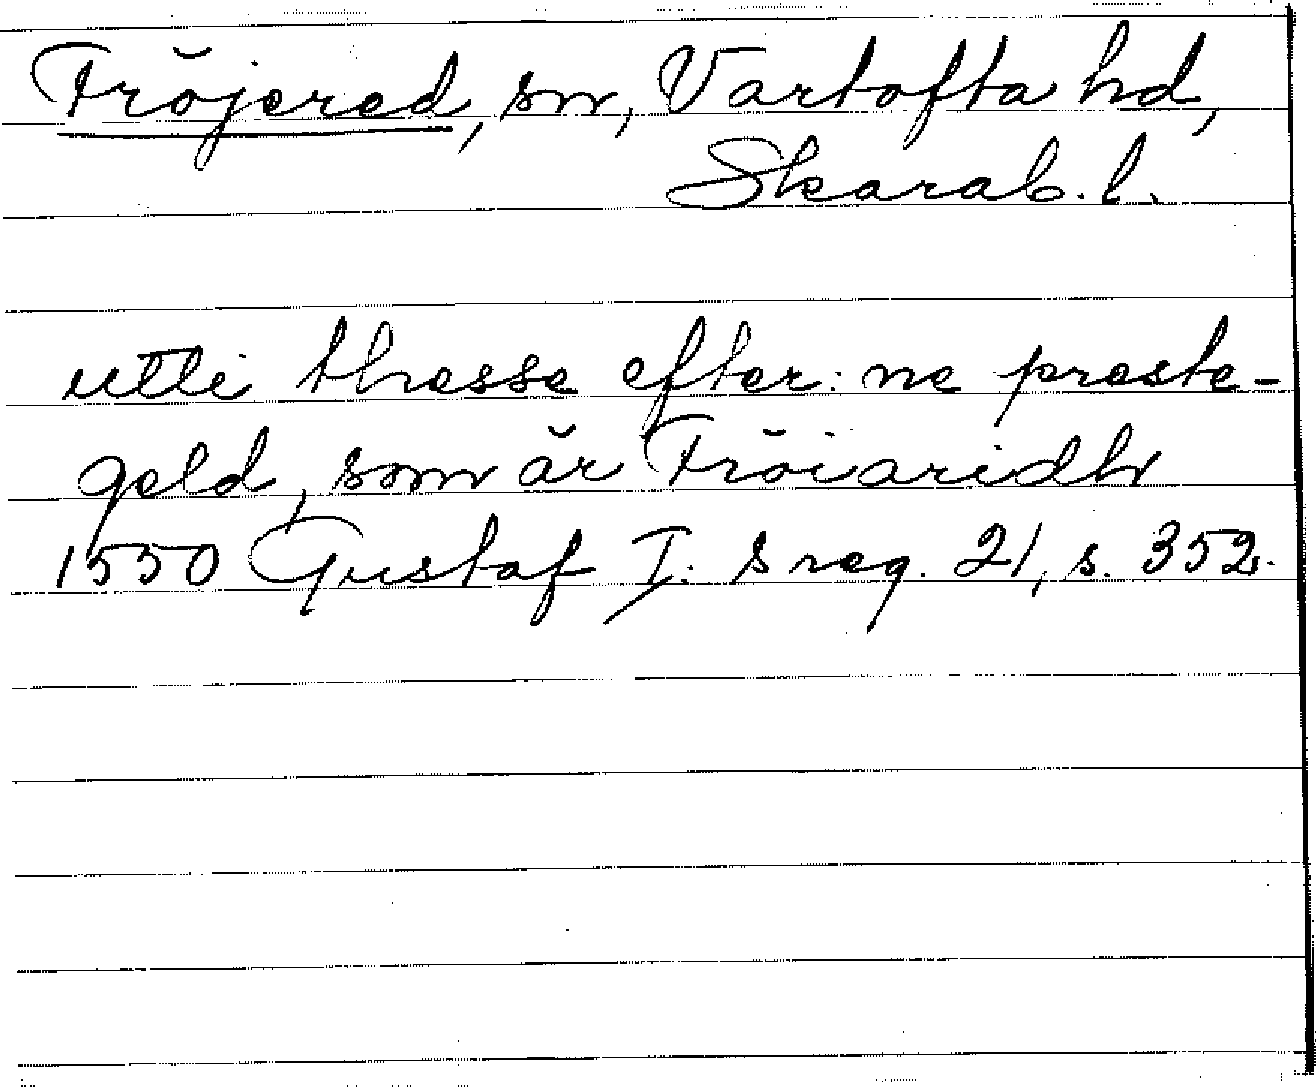 Fröjered, sn, Vartofta hd,
Skarab. l.
utti thesse efter: ne preste-
geld, som är Fröiaridh
1550 Gustaf I: s reg. 21, s. 352.